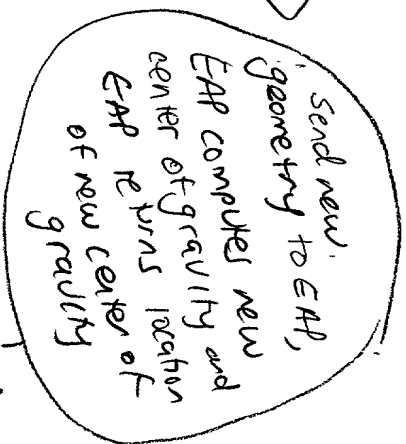 Send new
geometry to EAP,
EAP computes new
center of gravity and
EAP returns location
of new center of
gravity